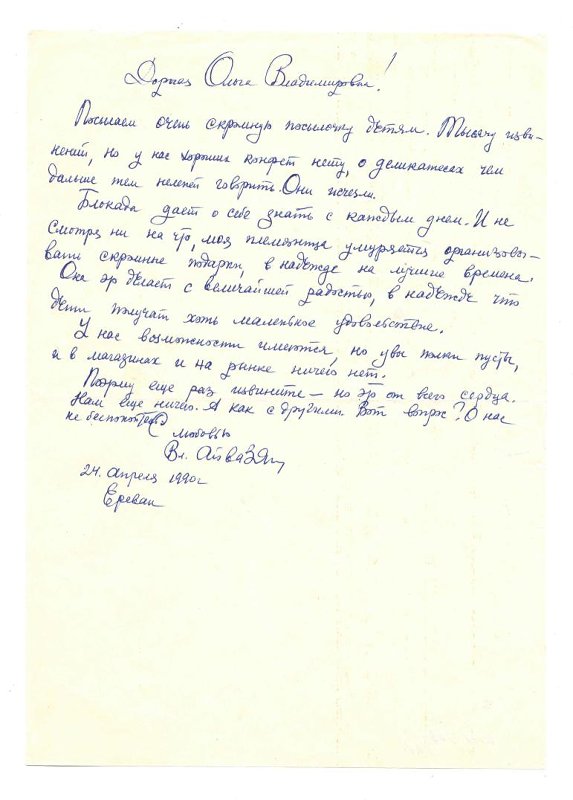 Дорогая Ольга Владимировна!
Посылаем очень скромную посылочку детям. Тысячу изви-
нений, но у нас хороших конфет нету, о деликатесах чем
дальше тем нелепей говорить. Они исчезли.
Блокада дает о себе знать с каждым днем. И не
смотря ни на что, моя племянница умудряется организовы-
вать скромные подарки, в надежде на лучшие времена.
Она это делает с величайшей радостью, в надежде что
дети получат хоть маленькое удовольствие.
У нас возможности имеются, но увы полки пусты,
и в магазинах и на рынке ничего нет.
Поэтому еще раз извините – но это от всего сердца.
Нам еще ничего. А как с другими. Вот вопрос? О нас
не беспокойтесь
С любовью
Вл. Айвазян
24. апреля 1990 г
Ереван